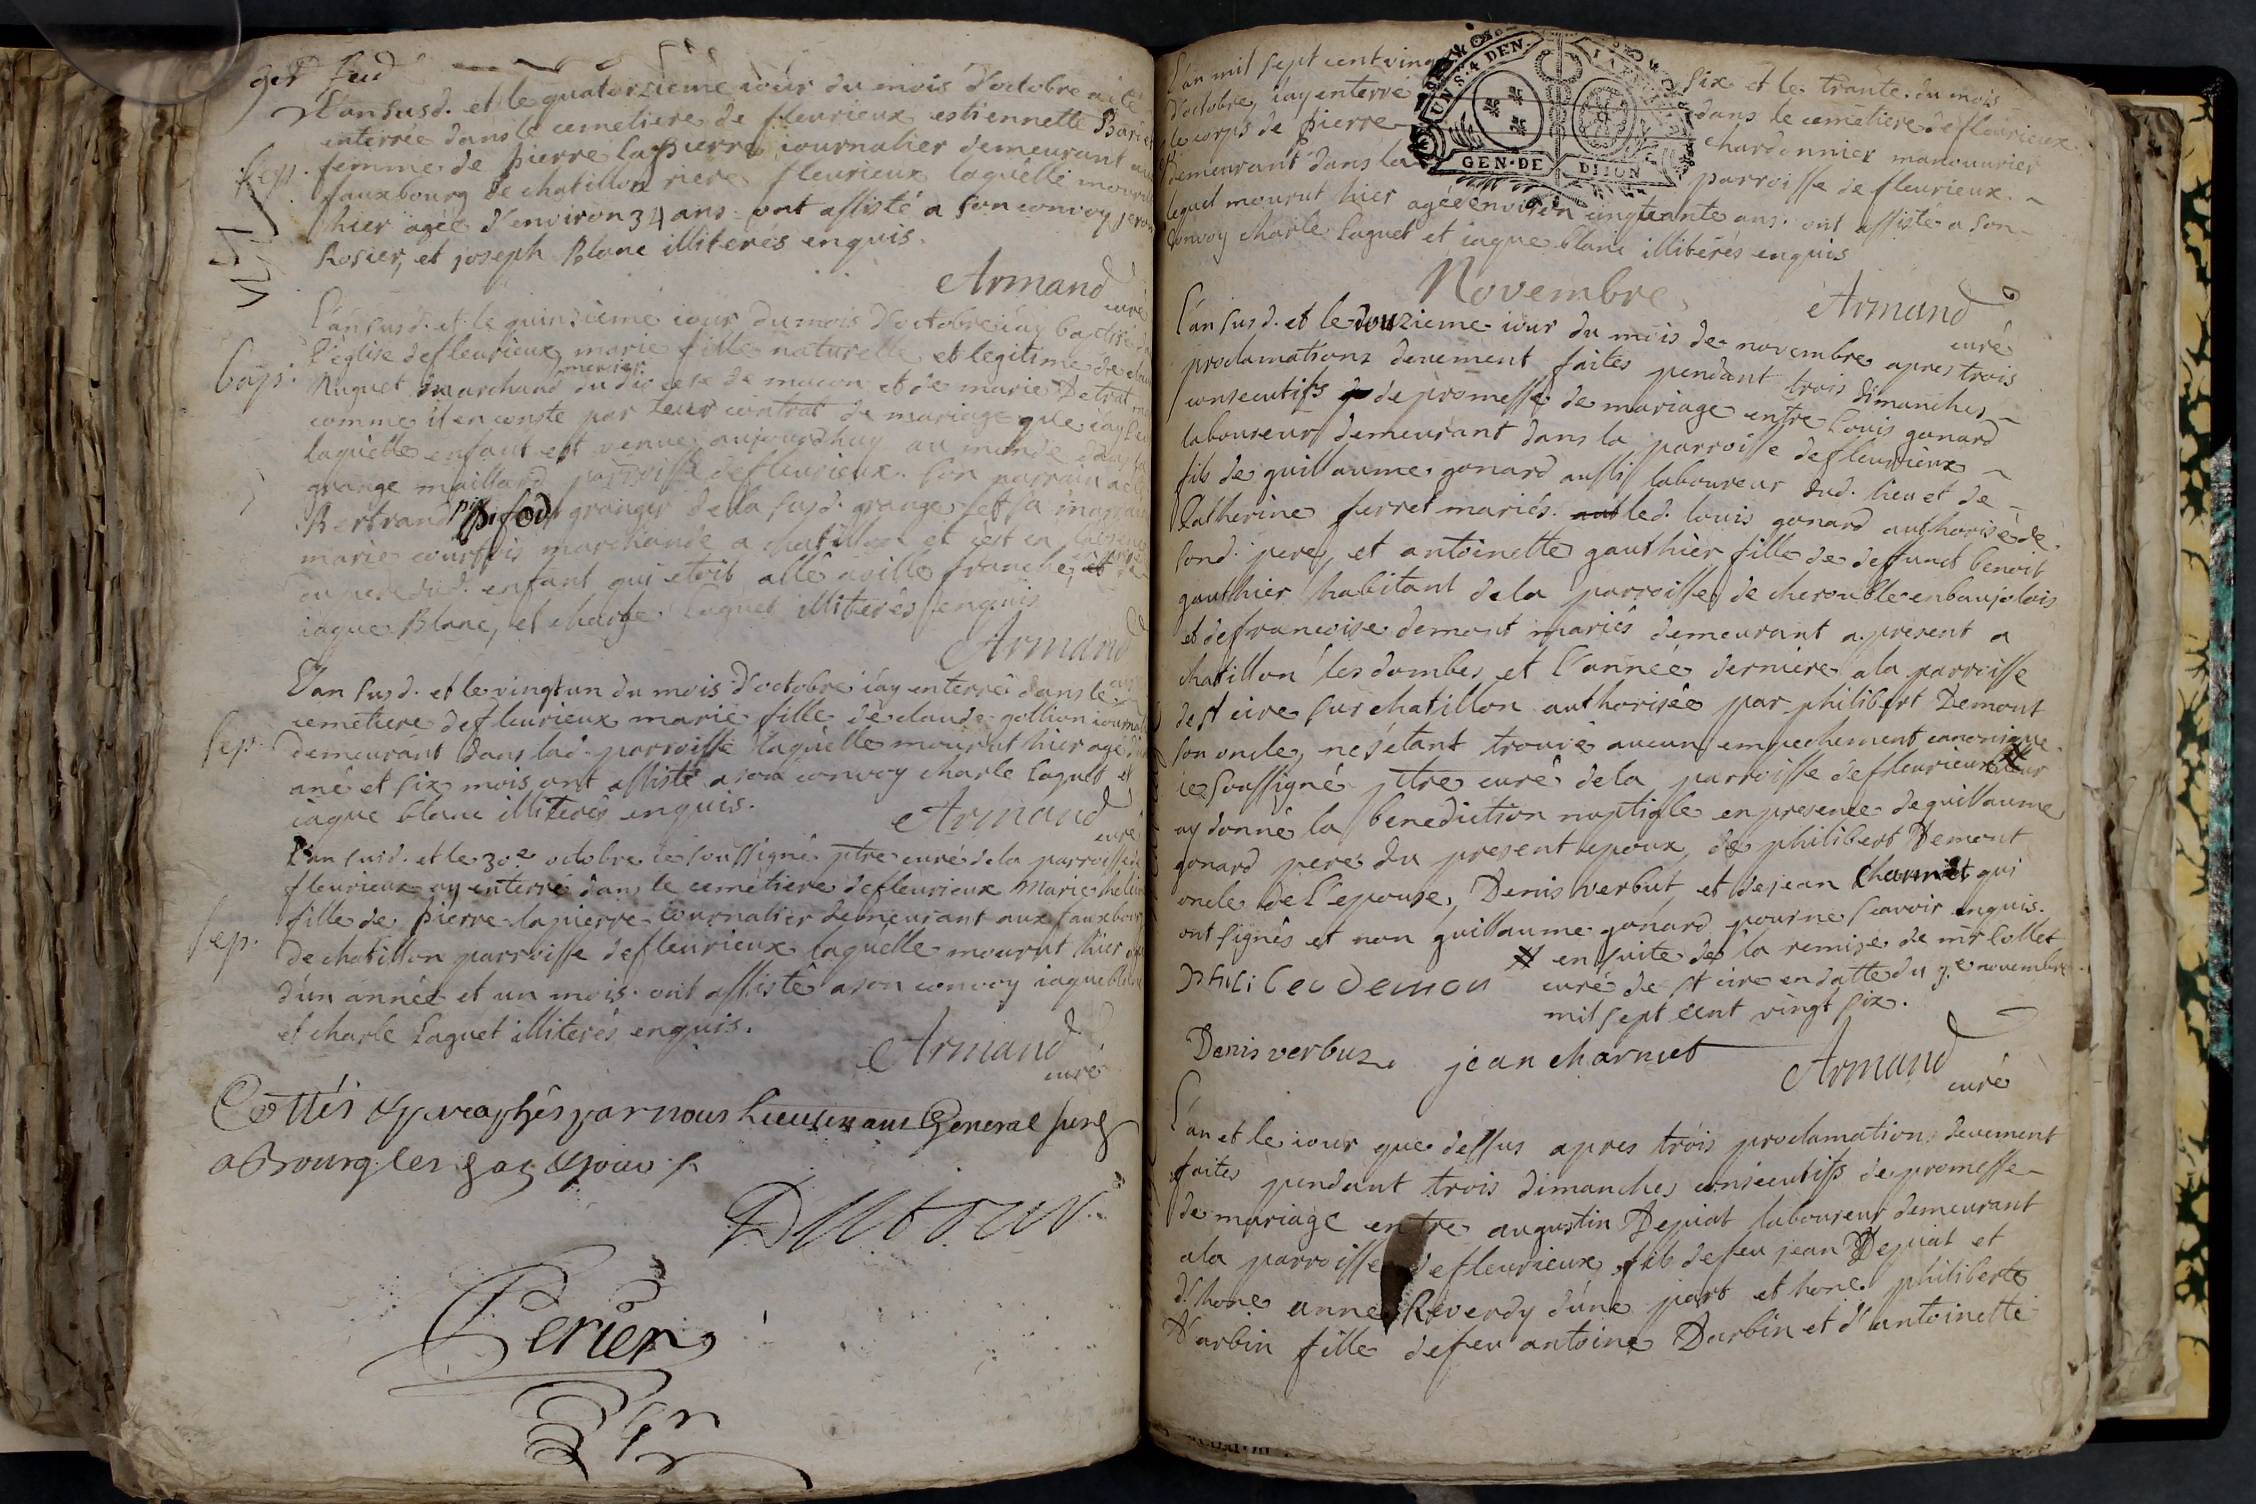 L'an susd. et le quatorzieme iour du mois d'octobre a été
enterrée dans le cemetiere de fleurieux estiennette
sep. femme de pierre lapierre iournalier demeurant au
fauxbourg de chatillon riere fleurieux laquelle mourut
hier agée d'environ 34 ans ont assisté a son convoy
Rosier, et joseph Blanc illiterés enquis.
Armand curé
L'an susd. et le quinzieme iour du mois d'octobre iay baptisé
l'église de fleurieux marie fille naturelle et legitime de
bap. Nuguet marchand mercier du diocese de macon et de marie Detrat
comme il en conste par leur contrat de mariage que iay
laquelle enfant est venue aujourdhuy au monde dans la
grange maillard parroisse de fleurieux. son parrain a été
Bertrand granger de la susd. grange et sa marraine
marie courtois marchande a chatillon et c'est en l'absence
du pere dud. enfant qui etoit allé a ville franche, en
iaque Blanc, et charle Laguet illiterés enquis
Armand
L'an susd. et le vingt un du mois d'octobre iay enterré dans le
cemetiere de fleurieux marie fille de claude gollion
sep. demeurant dans lad. parroisse laquelle mourut hier agée
ane et six mois ont assisté a son convoy charle Laguet et
iaque blanc illiterés enquis.
Armand curé
L'an susd. et le 30e octobre ie soussigné ptre curé de la parroisse de
fleurieux ay enterré dans le cemetiere de fleurieux Marie
fille de pierre lapierre iournalier demeurant aux fauxbourg
sep. de chatillon parroisse de fleurieux laquelle mourut hier
d'un année et un mois. ont assisté a son convoy iaque blanc
et charle Laguet illiterés enquis.
Armand
curé
Cottés & paraphés par nous Lieutenant General
a Bourg les
Perier
L'an mil sept cent vingt six et le trante du mois
d'octobre, iay enterré dans le cemetiere de fleurieux
le corps de pierre chardonnier manouvrier
demeurant dans la parroisse de fleurieux.
UNS. 4 DEN.
GEN. DE DIJON
lequel mourut hier agée environ cinqtante ans. ont assisté a son
convoy charle Laguet et iaque blanc illiterés enquis
Armand
curé
Novembre
L'an susd. et le douzieme iour du mois de novembre apres trois
proclamations deuement faites pendant trois dimanches
consecutifs de promesse de mariage entre Louis gonard
laboureur demeurant dans la parroisse de fleurieux
fils de guillaume gonard aussi laboureur dud. lieu et de
Catherine ferret mariés. led. louis gonard authorisé de
sond. pere, et antoinette gauthier fille de deffunct benoit
gauthier habitant de la parroisse de cherouble en baujolois
et de francoise demont mariés demeurant a present a
chatillon les dombes, et l'année derniere a la parroisse
de st cire sur chatillon authorisée par philibert Demont
son oncle, ne s'étant trouvé aucun empechement canonique
ie soussigné ptre curé de la parroisse de fleurieux
ay donné la benediction nuptiale en presence de guillaume
gonard pere du present epoux, de philibert Demont
oncle de l'epouse, Denis verbut, et de jean charnuet qui
ont signés et non guillaume gonard pour ne scavoir enquis.
en suite de la remise de mr Collet
curé de st cire en datte du 9e novembre
mil sept cent vingt six.
Denis verbuz jean charnuet Armand
curé
L'an et le iour que dessus apres trois proclamations deuement
faites pendant trois dimanches consecutifs de promesse
de mariage entre augustin Depiat laboureur demeurant
a la parroisse de fleurieux, fils de feu jean Depiat et
d'hone anne Reverdy d'une part et hone philiberte
Darbin fille de feu antoine Darbin et d'antoinette